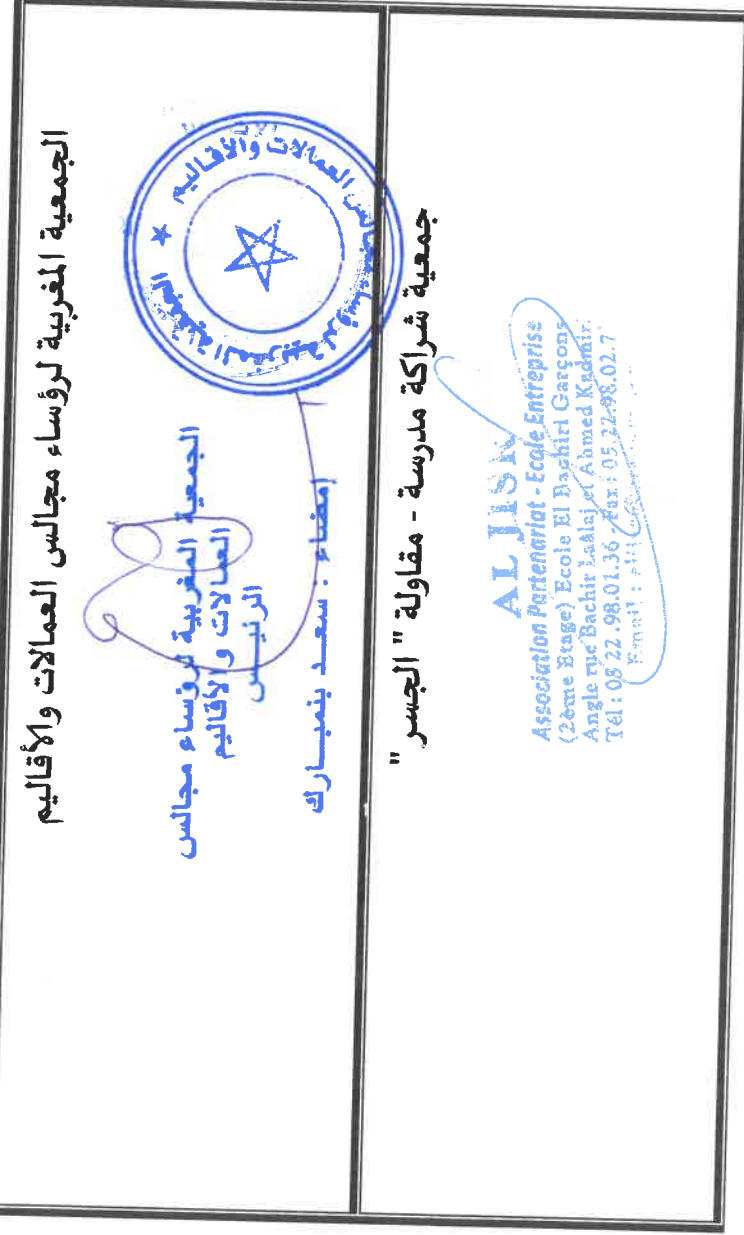 الجمعية المغربية لرؤساء مجالس العمالات والأقاليم
الجمعية المغربية لرؤساء مجالس العمالات والأقاليم ★
الجمعية المغربية لرؤساء مجالس
العمالات والأقاليم
الرئيس
إمضاء : سعد بنمبارك
جمعية شراكة مدرسة - مقاولة " الجسر "
AL JISR
Association Partenariat - Ecole Entreprise
(2ème Etage) Ecole El Baghiri Garçons
Angle rue Bachir Laâlaj et Ahmed Kadmiri
Tél : 05 22 .98.01.36 - Fax : 05 22.98.02.7
Email :